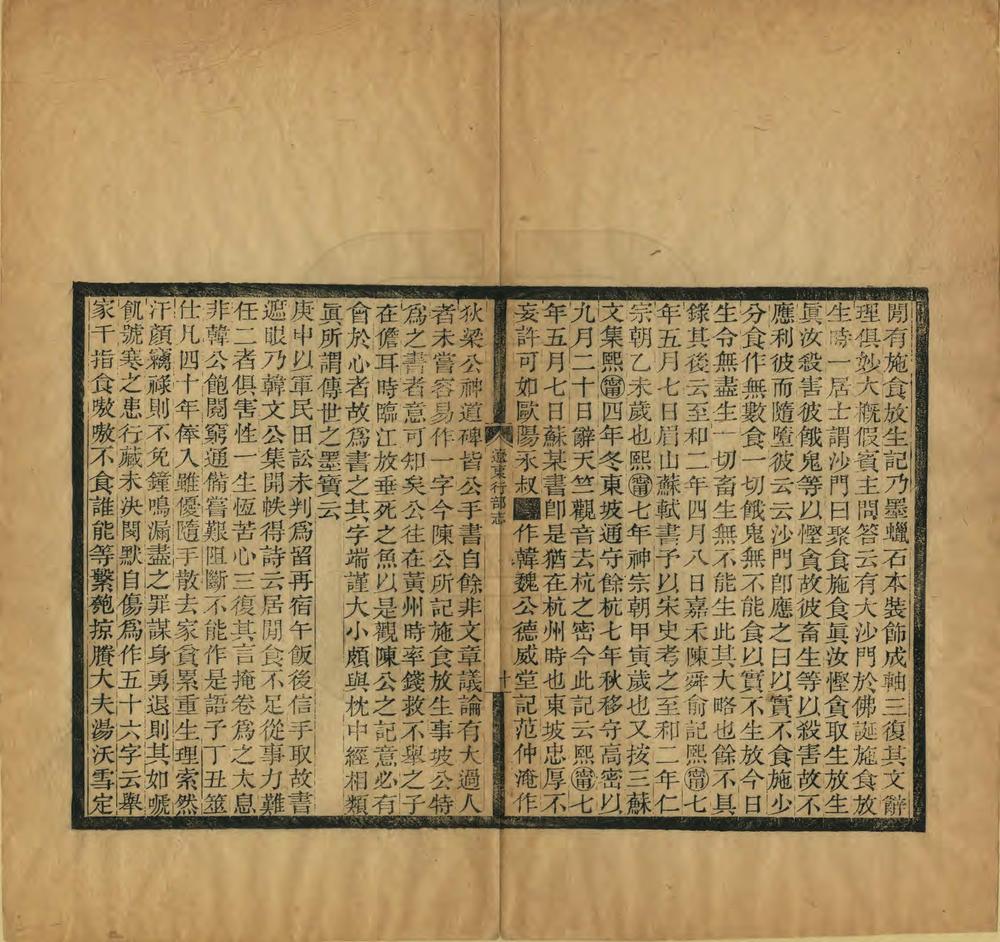 閒有施食放生記乃墨蠟石本裝飾成軸三復其文辭
理俱妙大槪假賓主問答云有大沙門於佛誕施食放
生時一居士謂沙門曰聚食施食眞汝慳貪取生放生
眞汝殺害彼餓鬼等以慳貪故彼畜生等以殺害故不
應利彼而隨墮彼云云沙門卽應之曰以實不食施少
分食作無數食一切餓鬼無不能食以實不生放今日
生令無盡生一切畜生無不能生此其大略也餘不具
錄其後云至和二年四月八日嘉禾陳舜俞記熙甯七
年五月七日眉山蘇軾書予以宋史考之至和二年仁
宗朝乙未歲也熙甯七年神宗朝甲寅歲也又按三蘇
文集熙甯四年冬東坡通守餘杭七年秋移守高密以
九月二十日辭天竺觀音去杭之密今此記云熙甯七
年五月七日蘇某書卽是猶在杭州時也東坡忠厚不
妄許可如歐陽永叔作韓魏公德威堂記范仲淹作
遼東行部志
十
狄梁公神道碑皆公手書自餘非文章議論有大過人
者未嘗容易作一字今陳公所記施食放生事坡公特
爲之書者意可知矣公往在黃州時率錢救不舉之子
在儋耳時臨江放垂死之魚以是觀陳公之記意必有
會於心者故爲書之其字端謹大小頗與枕中經相類
眞所謂傳世之墨寶云
庚申以軍民田訟未判爲留再宿午飯後信手取故書
遮眼乃韓文公集開帙得詩云居閒食不足從事力難
任二者俱害性一生恆苦心三復其言掩卷爲之太息
非韓公飽閱窮通備嘗艱阻斷不能作是語予丁丑筮
仕凡四十年俸入雖優隨手散去家貧累重生理索然
汗顏竊祿則不免鐘鳴漏盡之罪謀身勇退則其如嗁
飢號寒之患行藏未決閔默自傷爲作五十六字云舉
家千指食嗷嗷不食誰能等繫匏掠賸大夫湯沃雪定